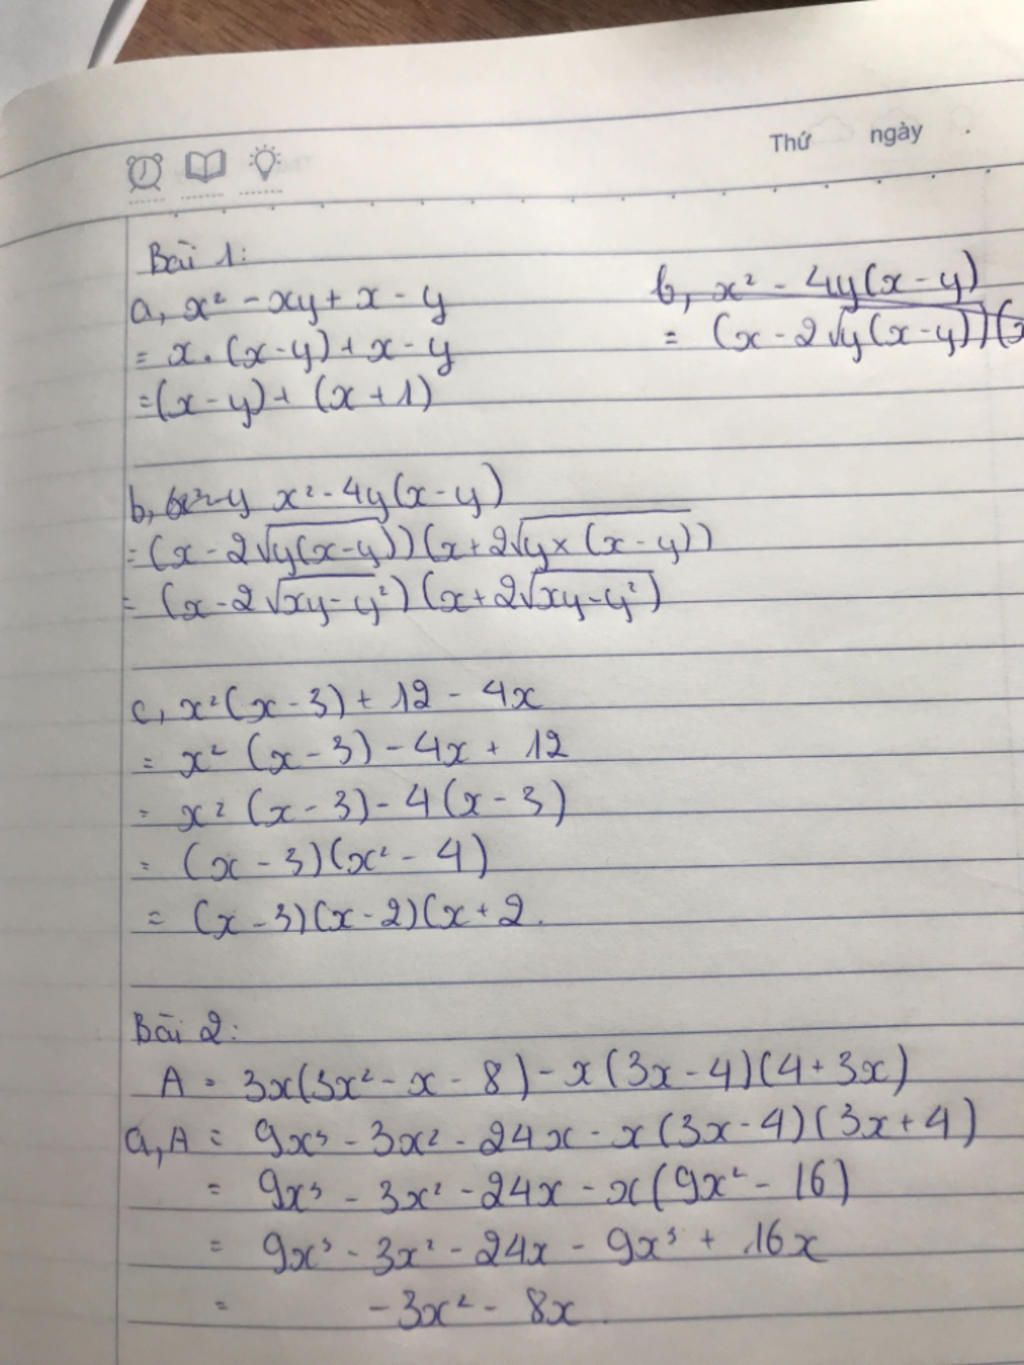 Thứ ngày .
Bài 1:
a, x² - xy + x - y
= x . (x - y) + x - y
= (x - y) + (x + 1)
b, x² - 4y(x - y)
= (x - 2√y(x - y))(x
b, x² - 4y(x - y)
= (x - 2√y(x - y))(x + 2√y × (x - y))
= (x - 2√xy - y²)(x + 2√xy - y²)
c, x²(x - 3) + 12 - 4x
= x² (x - 3) - 4x + 12
= x² (x - 3) - 4(x - 3)
= (x - 3)(x² - 4)
= (x - 3)(x - 2)(x + 2.
Bài 2:
A = 3x(3x² - x - 8) - x(3x - 4)(4 + 3x)
a, A = 9x³ - 3x² - 24x - x(3x - 4)(3x + 4)
= 9x³ - 3x² - 24x - x(9x² - 16)
= 9x³ - 3x² - 24x - 9x³ + 16x
= -3x² - 8x